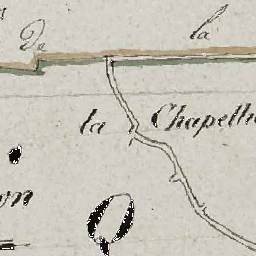 De la
la Chapelli
on
Q